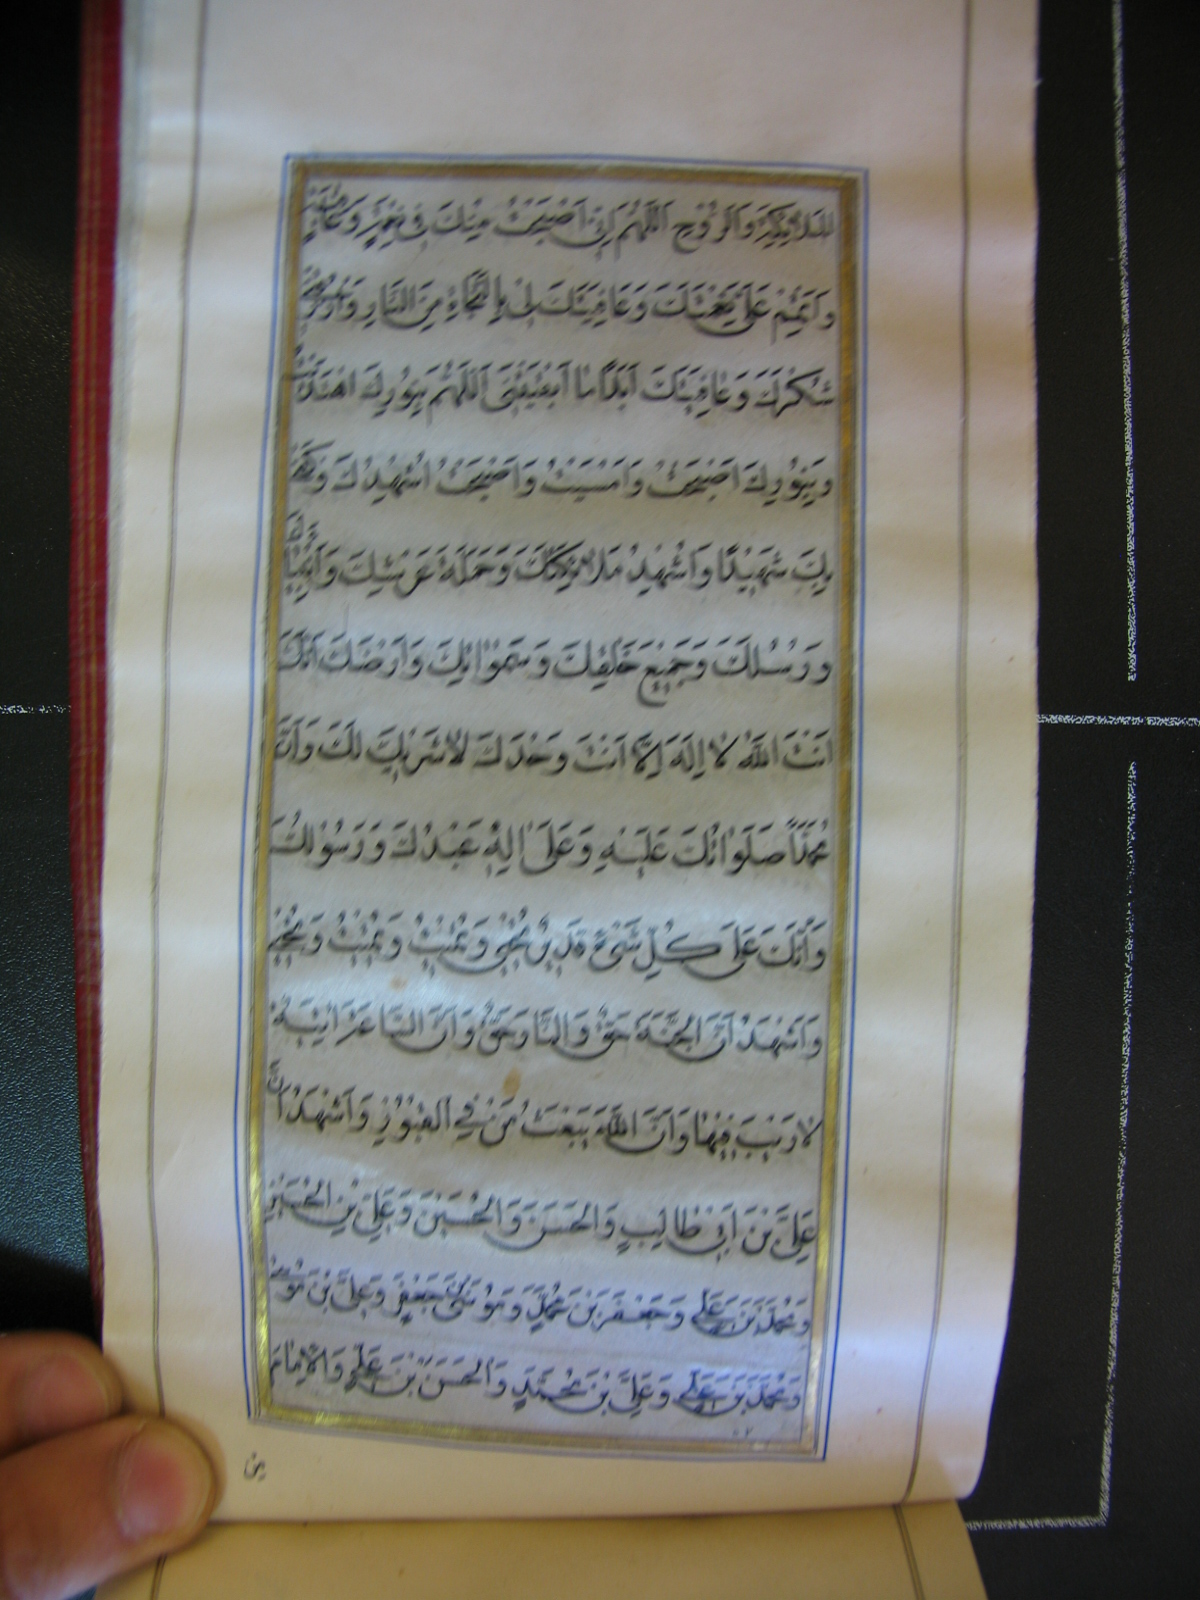 الملائكة والروح اللهم اني اصبحت منك في نعمة وعافية
واتمم علي نعمتك وعافيتك لي بالنجاة من النار وارزقني
شكرك وعافيتك ابدا ما ابقيتني اللهم بنورك اهتديت
وبنورك اصبحت وامسيت واصبحت اشهدك وكفى
بك شهيدا واشهد ملائكتك وحملة عرشك وانبيائك
ورسلك وجميع خلقك وسمواتك وارضك انك
انت الله لا اله الا انت وحدك لا شريك لك وان
محمدا صلواتك عليه وعلى اله عبدك ورسولك
وانك على كل شيء قدير تحيي وتميت وتميت وتحيي
واشهد ان الجنة حق والنار حق وان الساعة اتية
لا ريب فيها وان الله يبعث من في القبور واشهد ان
علي بن ابي طالب والحسن والحسين وعلي بن الحسين
ومحمد بن علي وجعفر بن محمد وموسى بن جعفر وعلي بن موسى
ومحمد بن علي وعلي بن محمد والحسن بن علي والامام